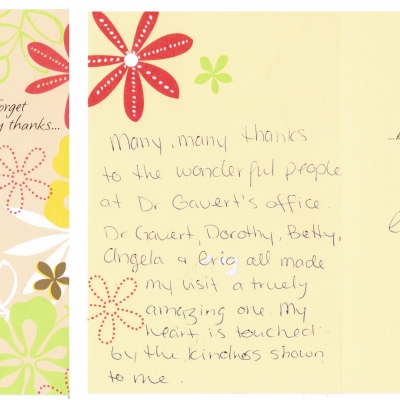 orget
y thanks...
Many, many thanks
to the wonderful people
at Dr Gavert's office.
Dr Gavert, Dorothy, Betty,
Angela & eric all made
my visit a truely
amazing one. My
heart is touched
by the kindness shown
to me.